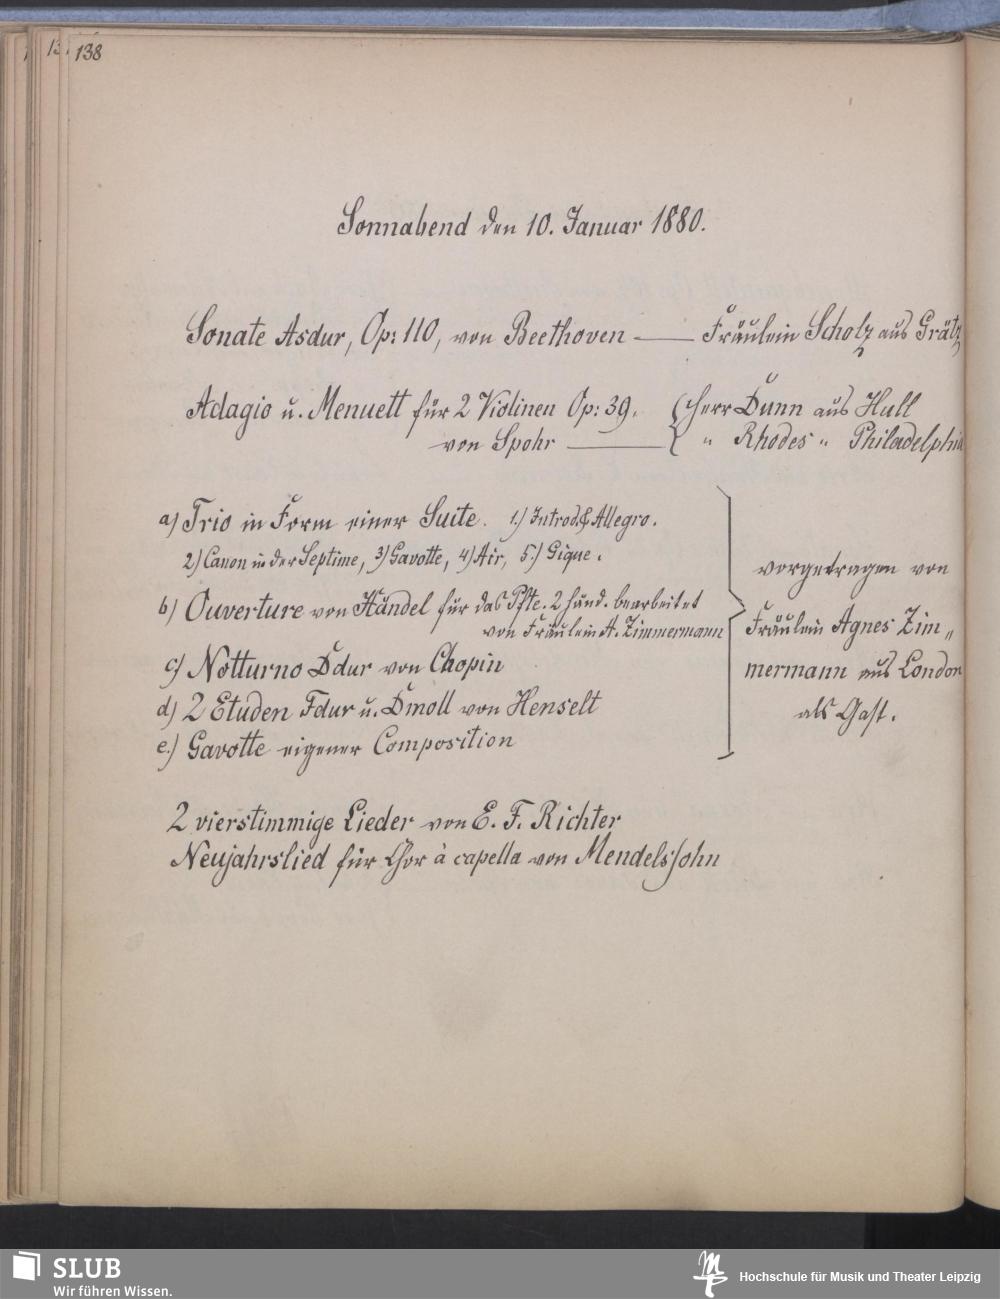 138
Sonnabend den 10. Januar 1880.
Sonate Asdur, Op: 110, von Beethoven — Fräulein Scholz aus Grätz
Adagio u. Menuett für 2 Violinen Op: 39. { Herr Dunn aus Hull
von Spohr — " Rhodes " Philadelphia
a) Trio in Form einer Suite. 1.) Introd. & Allegro.
2) Canon in der Septime, 3) Gavotte, 4) Air, 5.) Gique.
b) Ouverture von Händel für das Pfte. 2 händ. bearbeitet
von Fräulein A. Zimmermann
c) Notturno Ddur von Chopin
d) 2 Etuden Fdur u. Dmoll von Henselt
e.) Gavotte eigener Composition
vorgetragen von
Fräulein Agnes Zim„
mermann aus London
als Gast.
2 vierstimmige Lieder von E. F. Richter
Neujahrslied für Chor à capella von Mendelssohn
SLUB
Wir führen Wissen.
Hochschule für Musik und Theater Leipzig